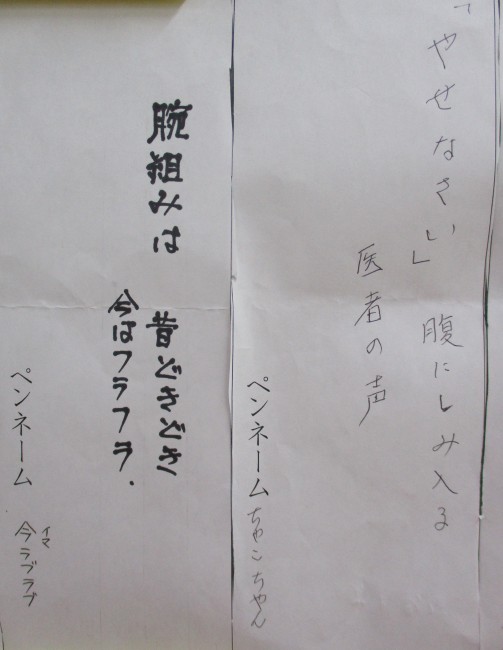 「やせなさい」 腹にしみ入る
医者の声
ペンネーム ちゃこちゃん
腕組みは 昔どきどき
今はフラフラ.
ペンネーム 今ラブラブ
イマ